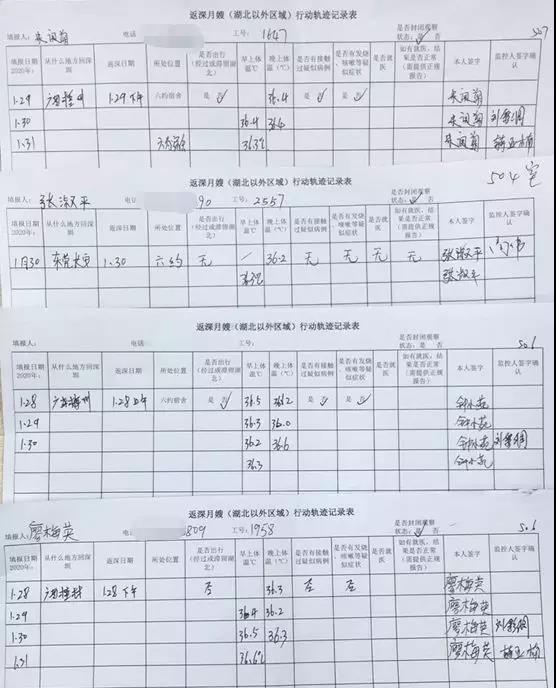 返深月嫂（湖北以外区域）行动轨迹记录表
507
填报人： 电话 工号：1647 是否封闭观察状态：是 否
填报日期2020年： 从什么地方回深圳 返深日期 所处位置 是否出行（经过或滞留湖北） 早上体温℃ 晚上体温（℃） 是否有接触过疑似病例 是否有发烧咳嗽等疑似症状 是否就医 如有就医，结果是否正常（需提供正规报告） 本人签字 监控人签字确认
1.29 1.29下午 六约宿舍 是 否 36.4 是 否 是 否
1.30 36.4 36.6
1.31 六约宿舍 36.3℃
返深月嫂（湖北以外区域）行动轨迹记录表
504室
张淑平 90 工号：2557 是否封闭观察状态：是 否
填报日期2020年： 从什么地方回深圳 返深日期 所处位置 是否出行（经过或滞留湖北） 早上体温℃ 晚上体温（℃） 是否有接触过疑似病例 是否有发烧咳嗽等疑似症状 是否就医 如有就医，结果是否正常（需提供正规报告） 本人签字 监控人签字确认
1月30 1.30 六约 无 / 36.2 无 无 无 无 张淑平
张淑平
返深月嫂（湖北以外区域）行动轨迹记录表
506
填报人： 电话 工号： 是否封闭观察状态：是 否
填报日期2020年： 从什么地方回深圳 返深日期 所处位置 是否出行（经过或滞留湖北） 早上体温℃ 晚上体温（℃） 是否有接触过疑似病例 是否有发烧咳嗽等疑似症状 是否就医 如有就医，结果是否正常（需提供正规报告） 本人签字 监控人签字确认
1.28 1.28上午 六约宿舍 是 否 36.5 36.2 是 否 是 否
1.29 36.3 36.0
1.30 36.2 36.6
36.3
返深月嫂（湖北以外区域）行动轨迹记录表
506
填报人：廖梅英 电 809 工号：1958 是否封闭观察状态：是 否
填报日期2020年： 从什么地方回深圳 返深日期 所处位置 是否出行（经过或滞留湖北） 早上体温℃ 晚上体温（℃） 是否有接触过疑似病例 是否有发烧咳嗽等疑似症状 是否就医 如有就医，结果是否正常（需提供正规报告） 本人签字 监控人签字确认
1.28 1.28下午 否 36.3 否 否 廖梅英
1.29 36.4 36.2 廖梅英
1.30 36.5 36.3 廖梅英
1.31 36.6℃ 廖梅英